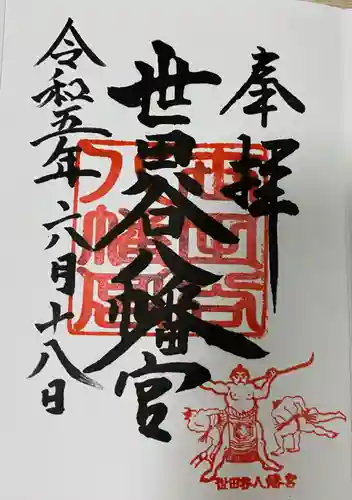 奉拝
世田谷八幡宮
令和五年六月十八日
世田谷八幡宮
世田谷八幡宮